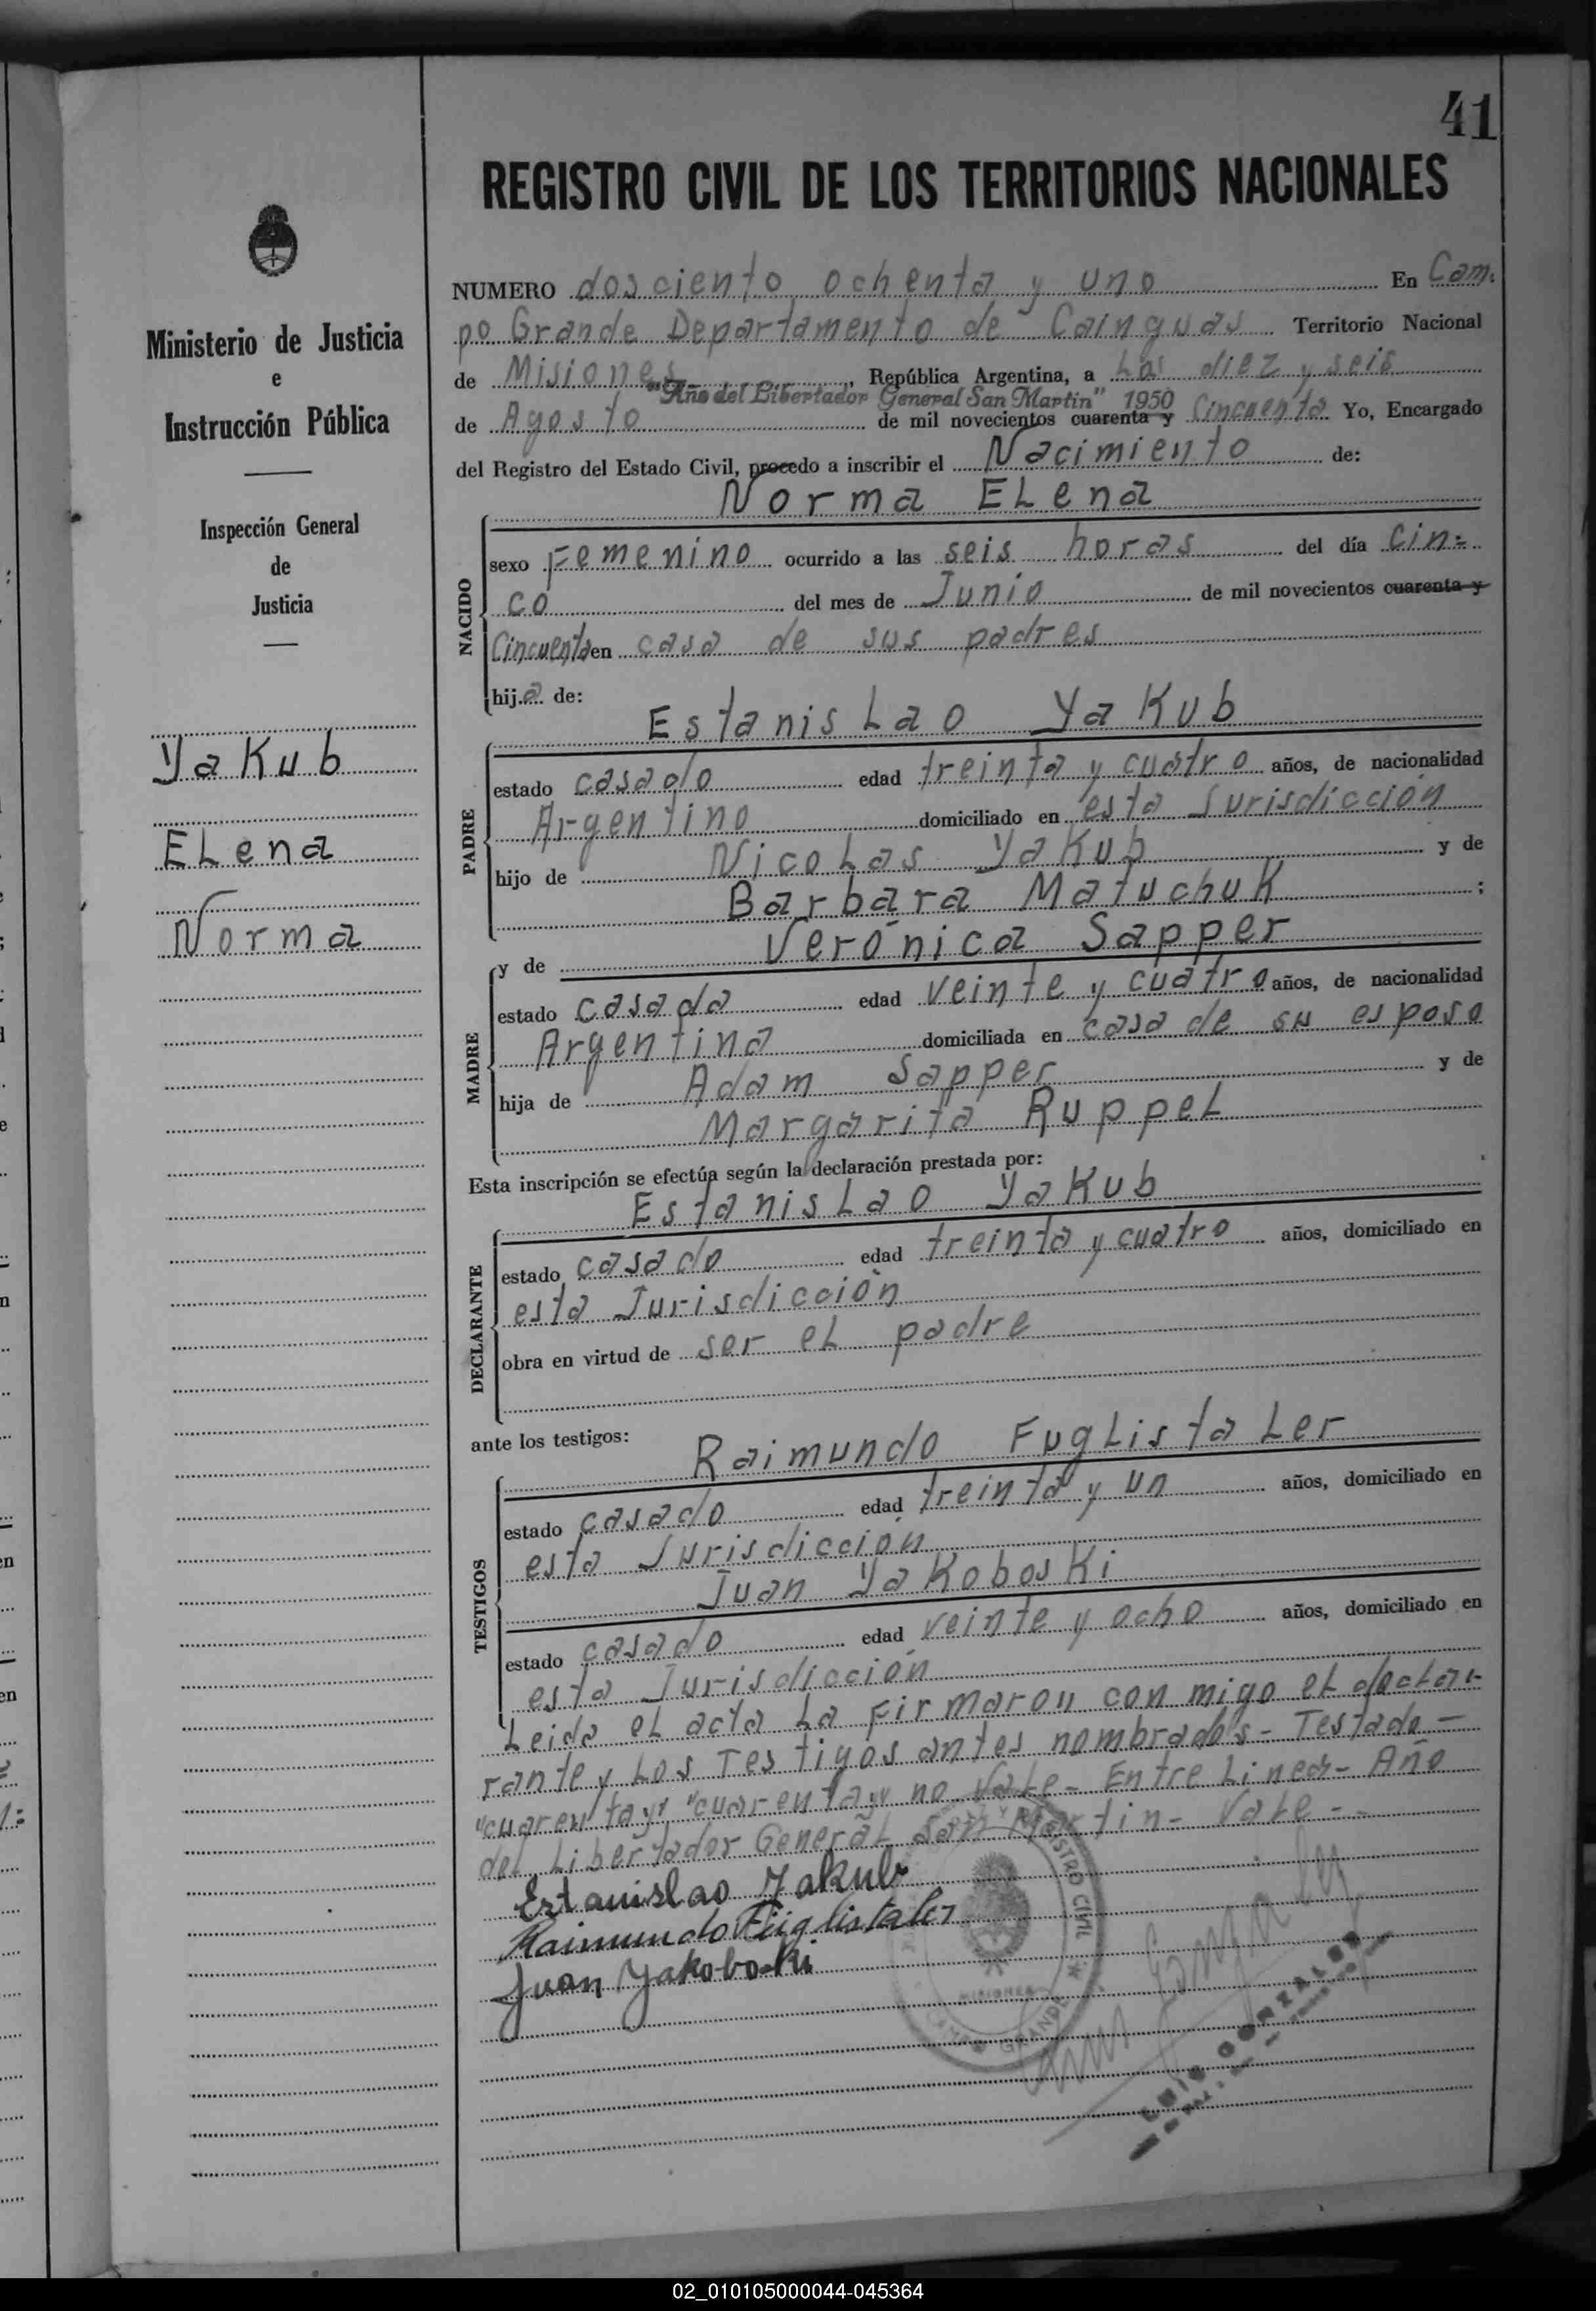 41
REGISTRO CIVIL DE LOS TERRITORIOS NACIONALES
Ministerio de Justicia
e
Instrucción Pública
Inspección General
de
Justicia
Yakub
ELena
Norma
NUMERO dosciento ochenta y uno En Cam-
po Grande Departamento de Cainguas Territorio Nacional
de Misiones, República Argentina, a Las diez y seis
"Año del Libertador General San Martin" 1950
de Agosto de mil novecientos cuarenta y Cincuenta Yo, Encargado
del Registro del Estado Civil, procedo a inscribir el Nacimiento de:
Norma ELena
NACIDO
sexo Femenino ocurrido a las seis horas del día Cin=
co del mes de Junio de mil novecientos cuarenta y
Cincuenta en casa de sus padres
hij.a de:
EstanisLao YaKub
PADRE
estado casado edad treinta y cuatro años, de nacionalidad
Argentino domiciliado en esta Jurisdicción
hijo de NicoLas YaKub y de
Barbara MatuchuK ;
y de Verónica Sapper
MADRE
estado casada edad veinte y cuatro años, de nacionalidad
Argentina domiciliada en casa de su esposo
hija de Adam Sapper y de
Margarita RuppeL
Esta inscripción se efectúa según la declaración prestada por:
EstanisLao YaKub
DECLARANTE
estado casado edad treinta y cuatro años, domiciliado en
esta Jurisdicción
obra en virtud de ser eL padre
ante los testigos:
Raimundo FugListaLer
TESTIGOS
estado casado edad treinta y un años, domiciliado en
esta Jurisdicción
Juan YaKobosKi
estado casado edad veinte y ocho años, domiciliado en
esta Jurisdicción
Leida eL acta La Firmaron con migo eL decLa-
rante y Los Testigos antes nombrados- Testado-
"cuarenta y" "cuarenta y" no VaLe- Entre Lineas- Año
deL Libertador GeneraL San Martin- VaLe--
Estanislao Yakub
Raimundo Füglistaler
Juan Yakoboski
REGISTRO CIVIL
MISIONES
CAMPO GRANDE
LUIS GONZALEZ
02_010105000044-045364